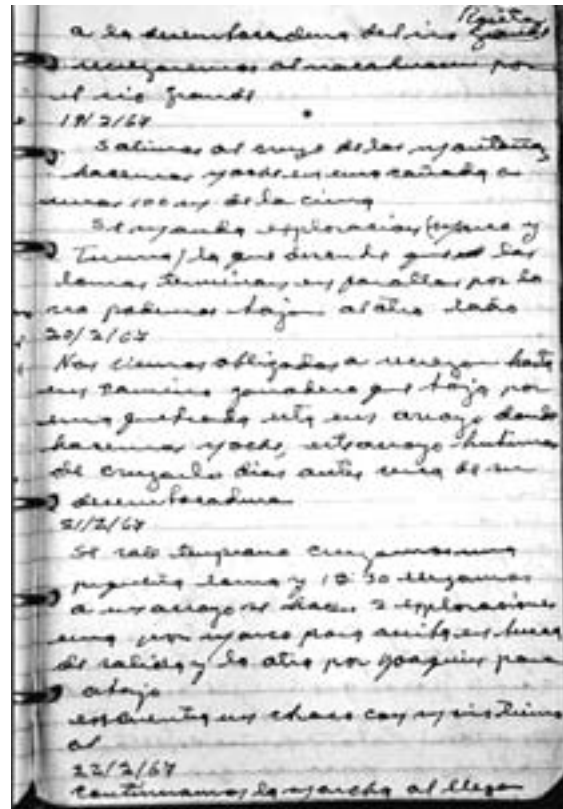 Rosita
a la desembocadura del rio Grande
regresaremos al nacahuasu por
el rio Grande
19/2/67
Salimos al cruze de las montañas
hacemos noche en una cañada a
unos 100 m de la cima
Se manda exploracion (Marcos y
Tuma) la que
lomas terminan en farallas por lo
no podemos bajar al otro lado
20/2/67
Nos vimos obligados a regresar hasta
un camino ganadero que baja por
una quebrada esta en arroyo donde
hacemos noche, este arroyo hubimos
de cruzarlo dias antes cerca de su
desembocadura
21/2/67
Se sale temprano cruzamos una
pequeña loma y 12:30 llegamos
a un arroyo se hacen 2 exploraciones
una por Marcos para arriba en busca
de salida y la otra por Joaquin para
abajo
encuentra un chaco con
al
22/2/67
continuamos la marcha al llegar